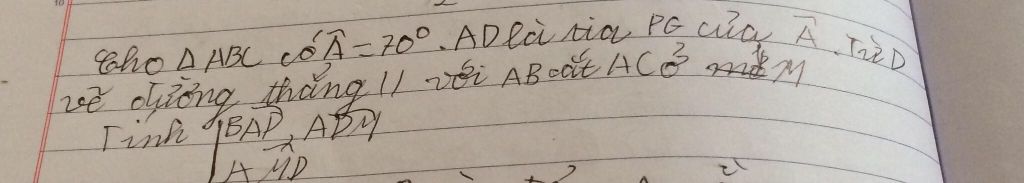 Cho Δ ABC có Â = 70°. AD là tia PG của Â. Từ D
vẽ đường thẳng // với AB cắt AC ở M
Tính BAD, ADM
AMD